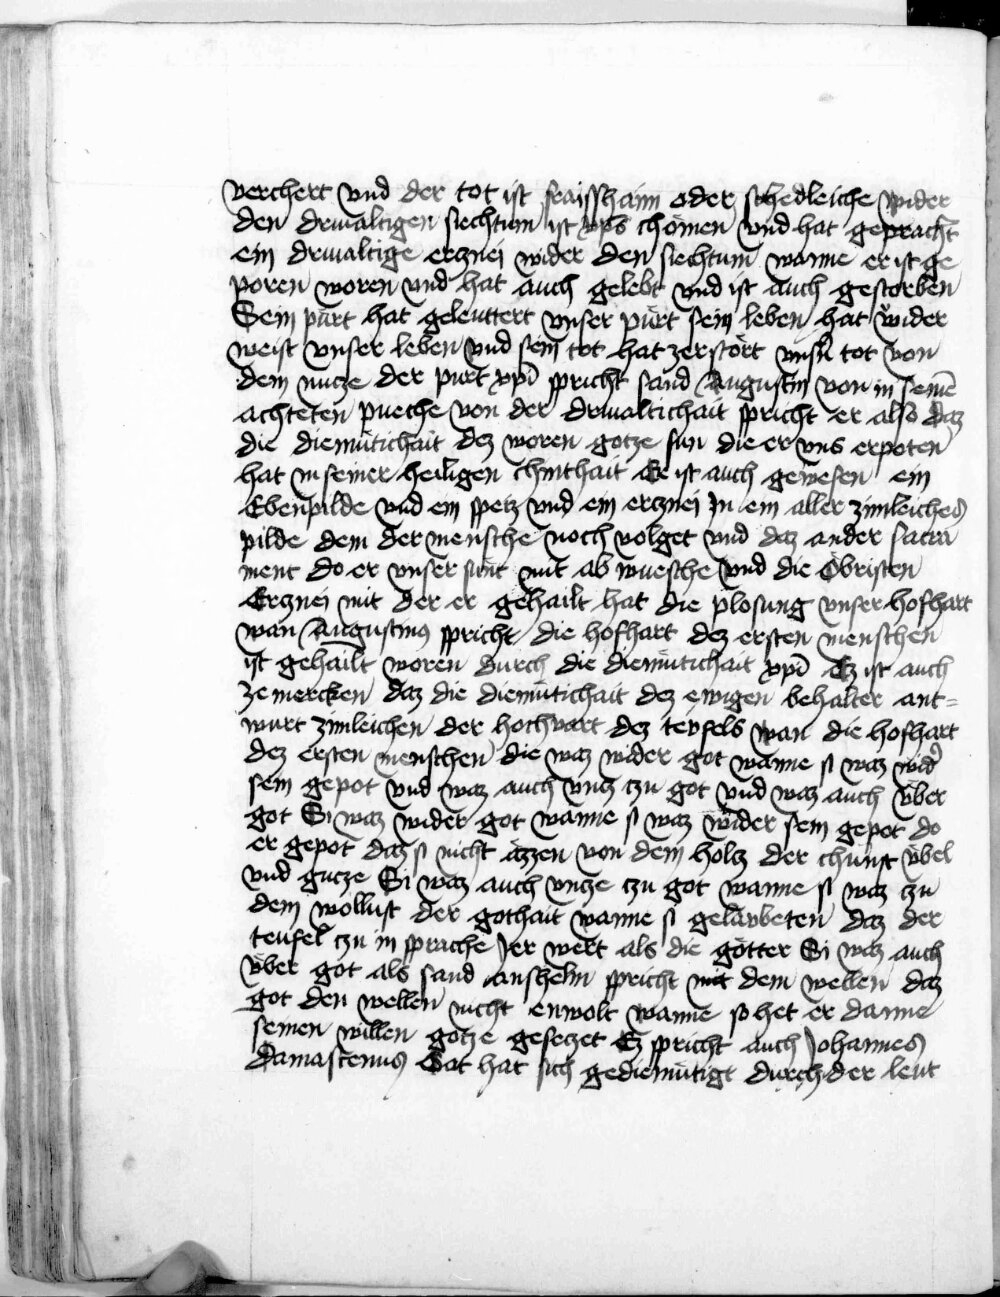 verchert vnd der tot ist fraisshann oder schedleiche wider
den driualtigen siechtum ist xps chömen vnd hat gepracht
ein driualtige ercznei wider den siechtum wanne er ist ge
poren woren vnd hat auch gelebt vnd ist auch gestorben
Sein pürt hat geleuttert vnser pürt sein leben hat wider
weist vnser leben vnd sein tot hat zerstört vnsn̄ tot von
dem nucze der purt xpi spricht sand Augustin von in seinē
achteten pueche von der driualtichait spricht er also daz
die diemütichait dez woren gotze sun die er vns erpoten
hat in seiner heiligen chinthait Er ist auch gewesen ein
Ebenpilde vnd ein spetz vnd ein ercznei In ein aller zimleiches
pilde dem der mensche noch volget vnd daz ander sacra
ment do er vnser sünt mit ab wuesche vnd die Öbristen
Ercznei mit der er gehailt hat die plosung vnser hofhart
wan Augustinus spricht die hofhart dez ersten menschen
ist gehailt woren durch die diemütichait xpi Ez ist auch
ze mercken daz die diemütichait dez ewigen behalter ant=
wurt zimleichen der hochvart dez teyfels wan die hofhart
dez ersten menschen die waz wider got wanne si waz wid̉
sein gepot vnd waz auch vncz czu got vnd waz auch über
got Si waz wider got wanne si waz wider sein gepot do
er gepot daz si nicht äzzen von dem holcz der chunst übel
vnd gucze Si waz auch vncze czu got wanne si waz czu
dem wollust der gothait wanne si gelaubeten daz der
teufel czu in sprache Ier wert als die götter Si waz auch
über got als sand anshelm spricht mit dem wellen daz
got den wellen nicht enwolt wanne so het er danne
seinen willen gotze geseczet Ez spricht auch Johannes
Damascenus Got hat sich gediemütigt durch der leut